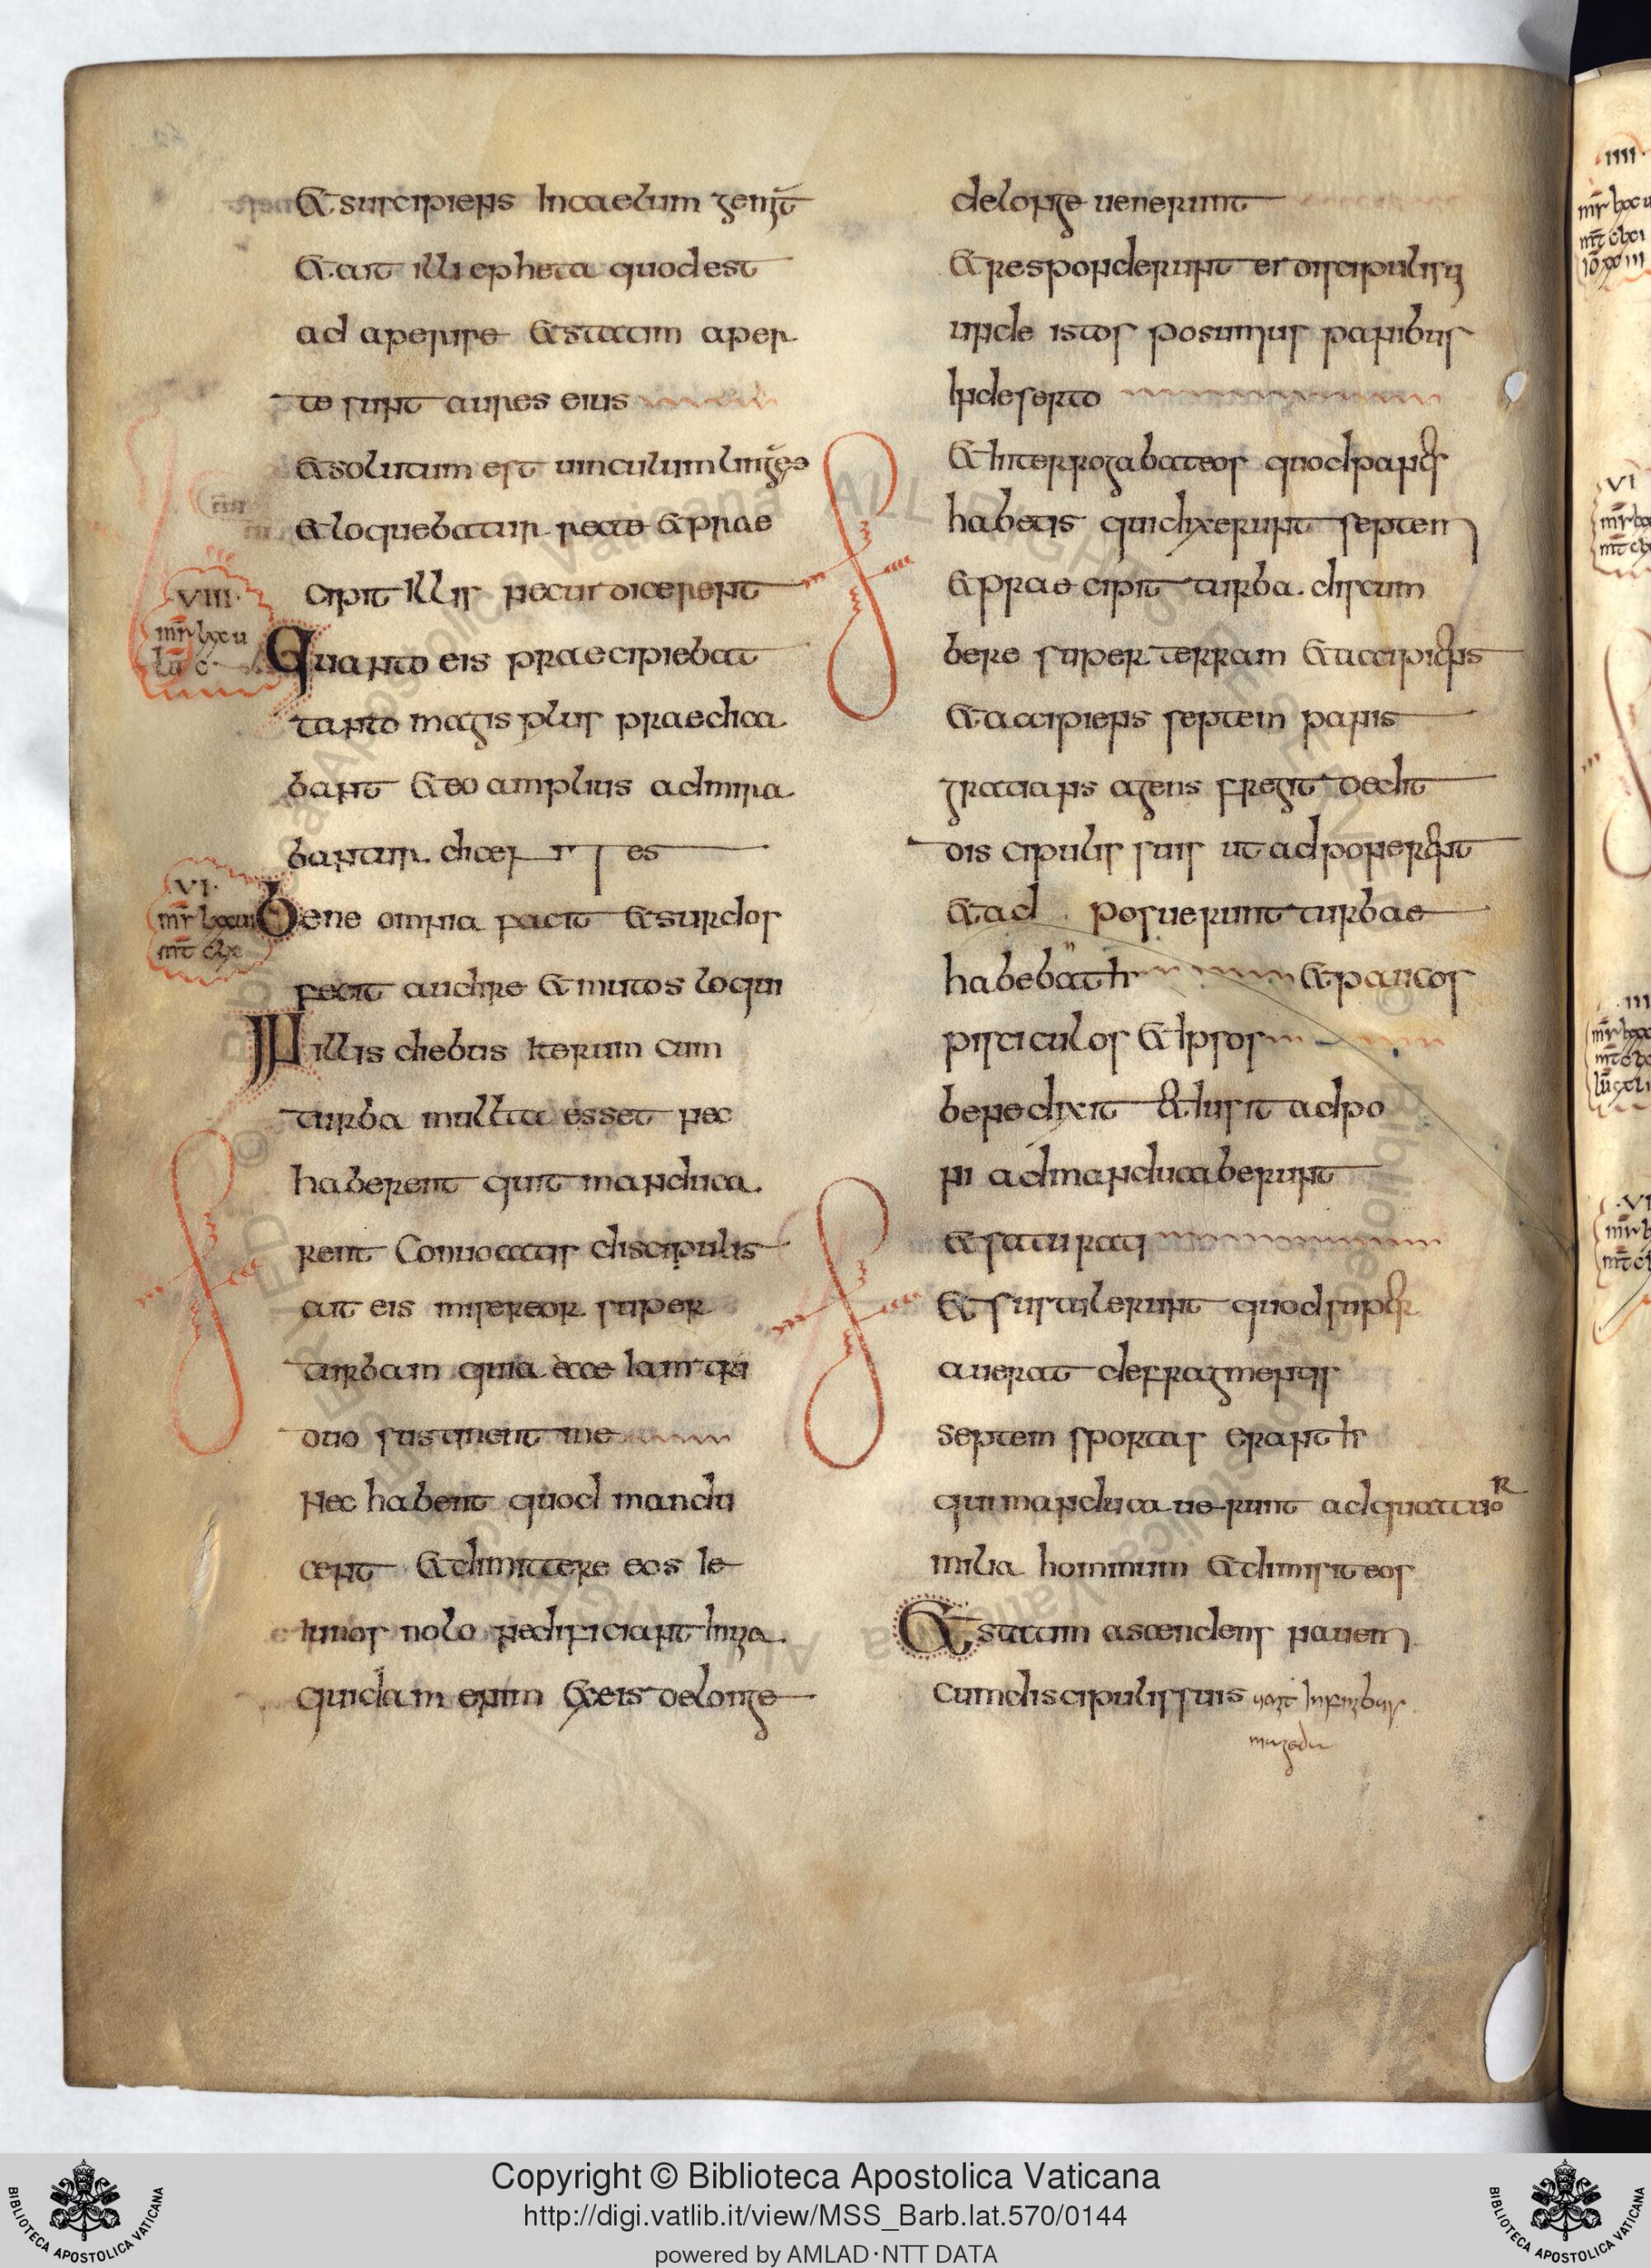 &suscipiens In caelum gem̄
& ait illi epheta quod est
ad aperire & statim aper
te sunt aures eius
& solutum est uinculum linguę
& loquebatur recte & prae
VIII
cipit Illis necui dicerent
mr̄ lxxu
Quanto eis praecipiebat
tanto magis plus praedica
bant & eo amplius admira
bantur dicentes
VI
mr̄ lxxui
mt̄ clx
Bene omnia facit & surdos
fecit audire & mutos loqui
IN illis diebus Iterum cum
turba multa esset nec
haberent quit manduca
rent Conuocatis discipulis
ait eis misereor super
turbam quia ecce Iam tri
duo sustinent me
Nec habent quod mandu
cent & dimittere eos Ie
Iunos nolo nedificiant In uia
quidam enim & eis delonge
delonge uenerunt
& responderunt ei discipuli sui
unde istos posumus panibus
Indeserto
& Interrogabat eos quod panes
habetis qui dixerunt septem
& praecipit turba discum
bere super terram & accipiens
& accipiens septem panis
gratians agens fregit dedit
discipulis suis ut adponerent
& ad posuerunt turbae
habebat & paucos
pisciculos & Ipsos
benedixit & Iusit adpo
ni ad manducaberunt
& saturati
& sustulerunt quod super
auerat defragmentis
septem sportas Erant
qui manducauerunt ad quattuor
milia hominum & dimisit eos
& statim ascendens nauem
cum discipulis suis
Copyright © Biblioteca Apostolica Vaticana
http://digi.vatlib.it/view/MSS_Barb.lat.570/0144
powered by AMLAD·NTT DATA
BIBLIOTECA APOSTOLICA VATICANA
BIBLIOTECA APOSTOLICA VATICANA